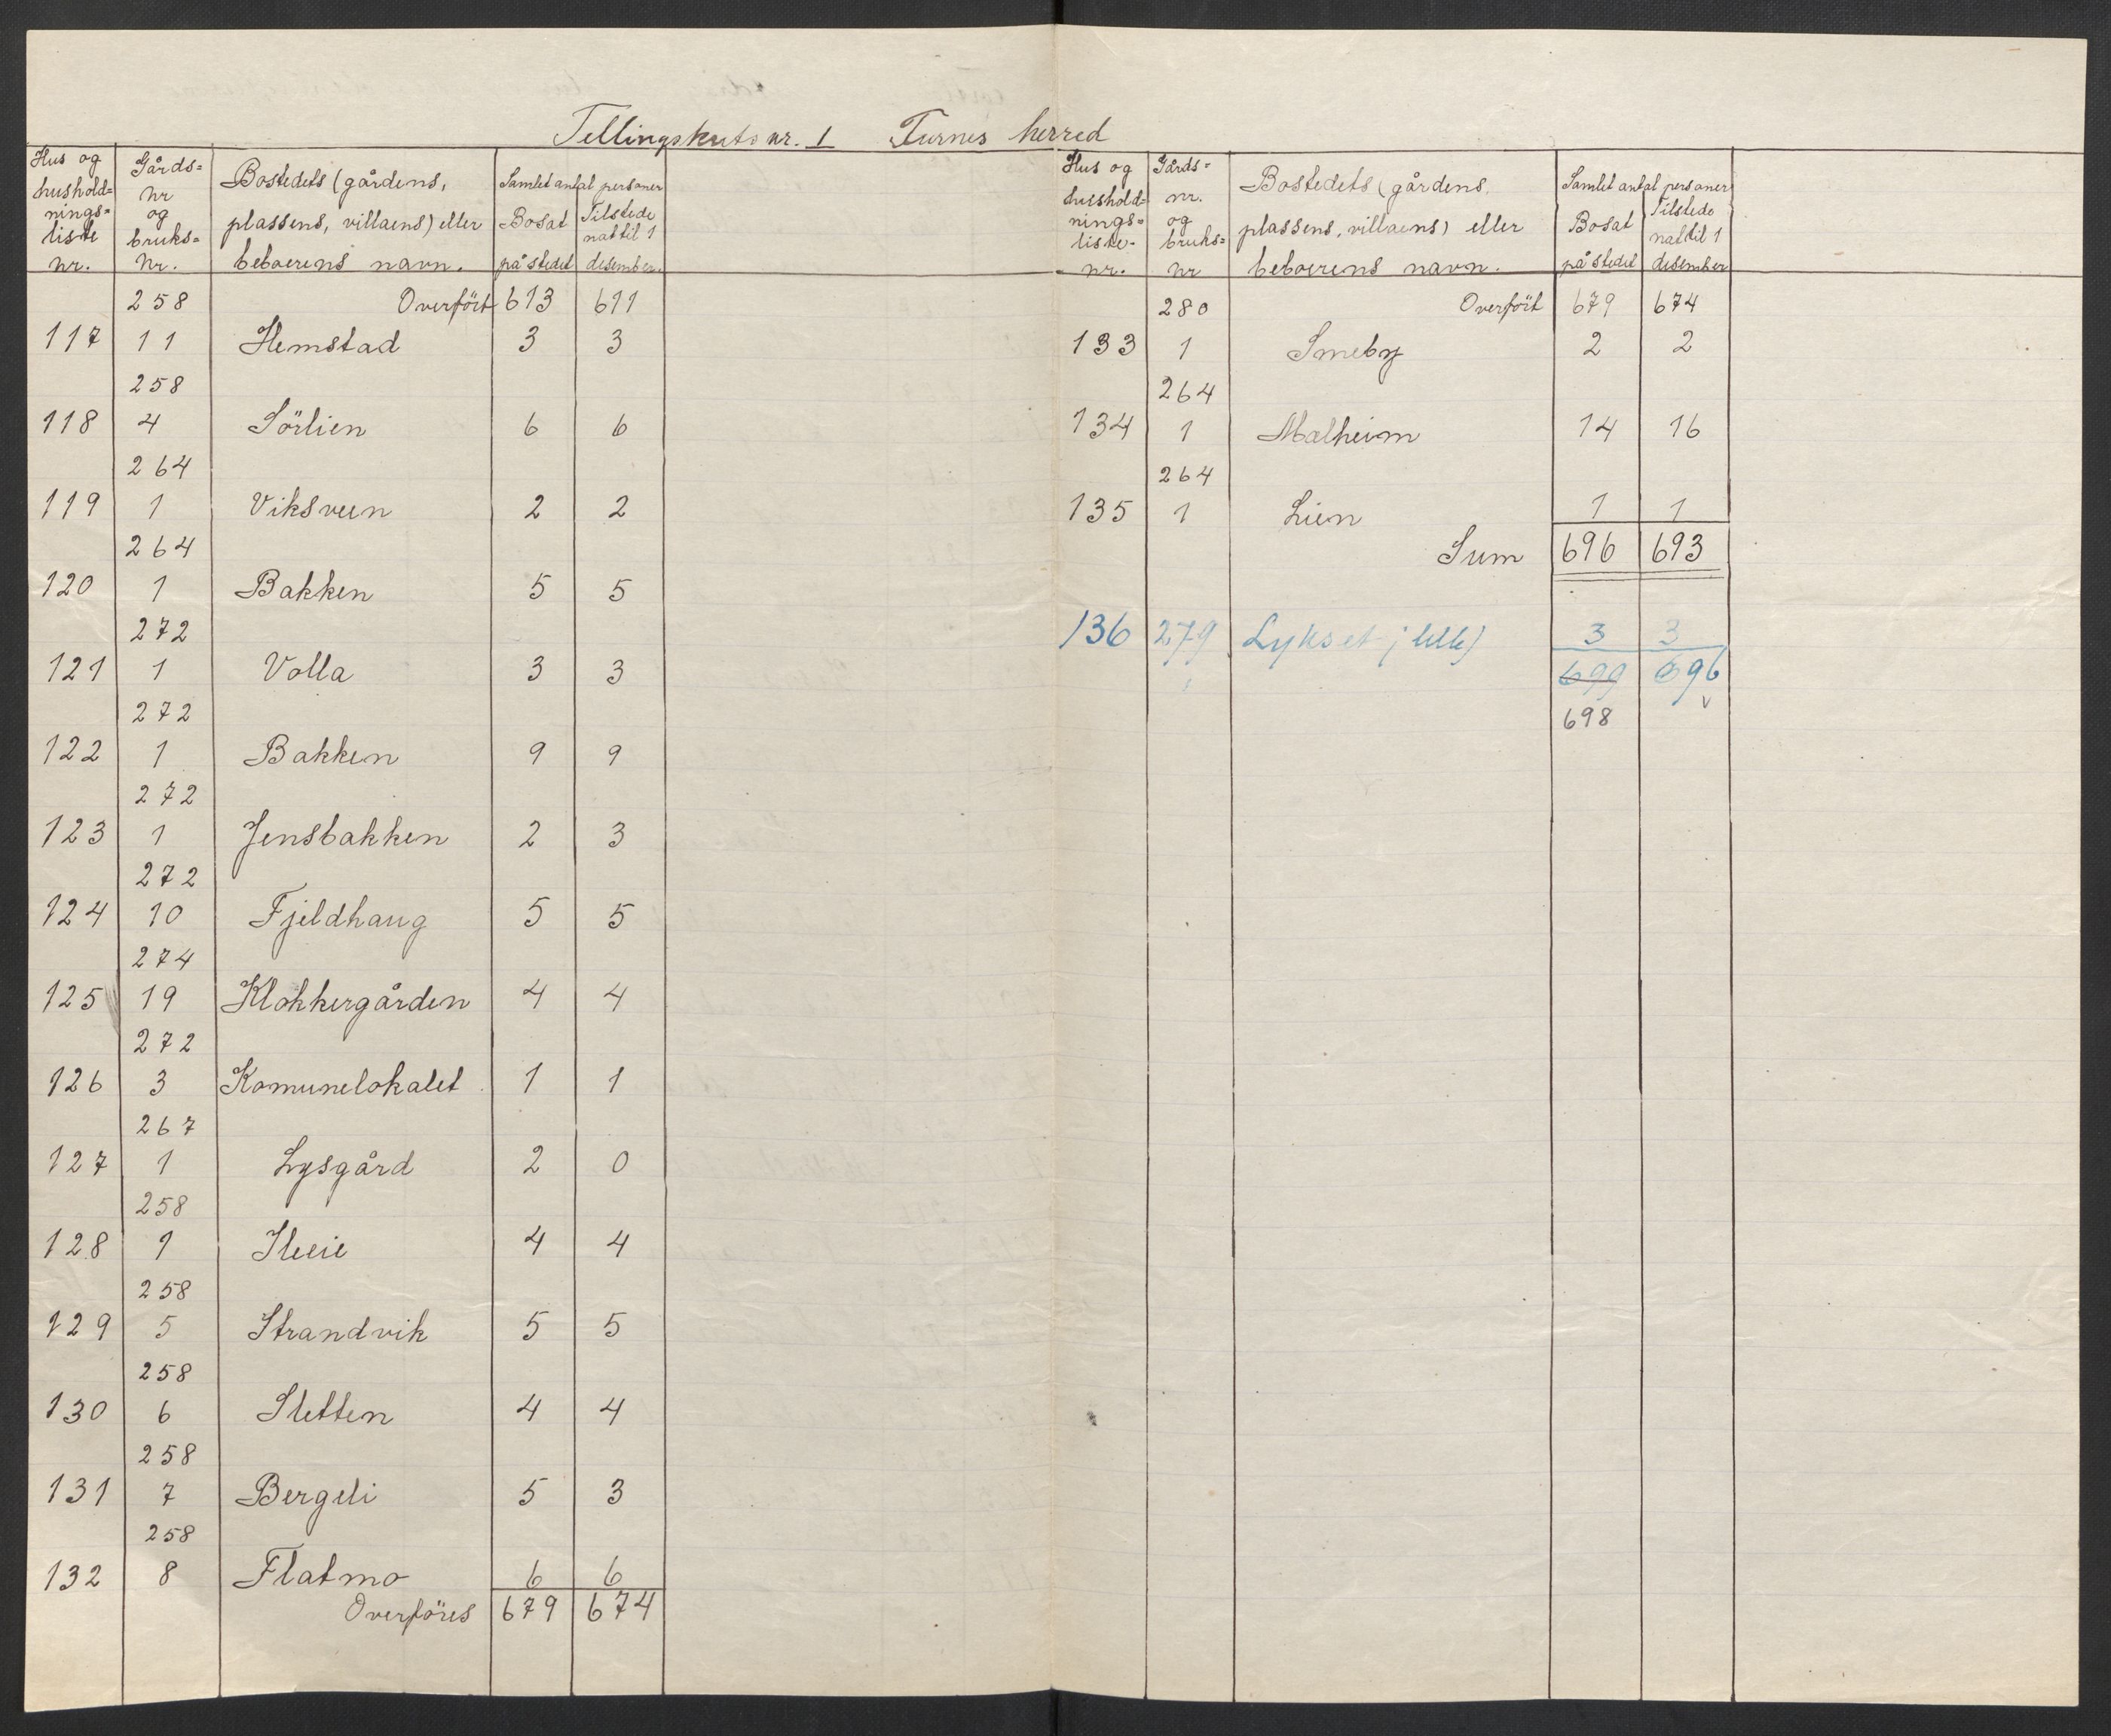 Tellingskrets nr. 1 Furnes herred
Hus og hushold=nings=liste nr. | Gårds=nr og bruks=nr. | Bostedets (gårdens, plassens, villaens) eller beboerens navn. | Samlet antal personer Bosat på stedet | Tilstede nat til 1 desember.
258 Overført 613 611
117 11 Hemstad 3 3
258
118 4 Sörlien 6 6
264
119 1 Viksveen 2 2
264
120 1 Bakken 5 5
272
121 1 Volla 3 3
272
122 1 Bakken 9 9
272
123 1 Jensbakken 2 3
272
124 10 Fjeldhaug 5 5
274
125 19 Klokkergården 4 4
272
126 3 Komunelokalet 1 1
267
127 1 Lysgård 2 0
258
128 1 Ileeie 4 4
258
129 5 Strandvik 5 5
258
130 6 Sletten 4 4
258
131 7 Bergeli 5 3
258
132 8 Flatmo 6 6
Overföres 679 674
Hus og hushold=nings=liste- nr. | Gårds=nr. og bruks=nr | Bostedets (gårdens, plassens, villaens) eller beboerens navn. | Samlet antal personer Bosat på stedet | Tilstede nat til 1 desember
280 Overfört 679 674
133 1 Smeby 2 2
264
134 1 Malheim 14 16
264
135 1 Lien 1 1
Sum 696 693
136 279 Lykset 3 3
699 696
698